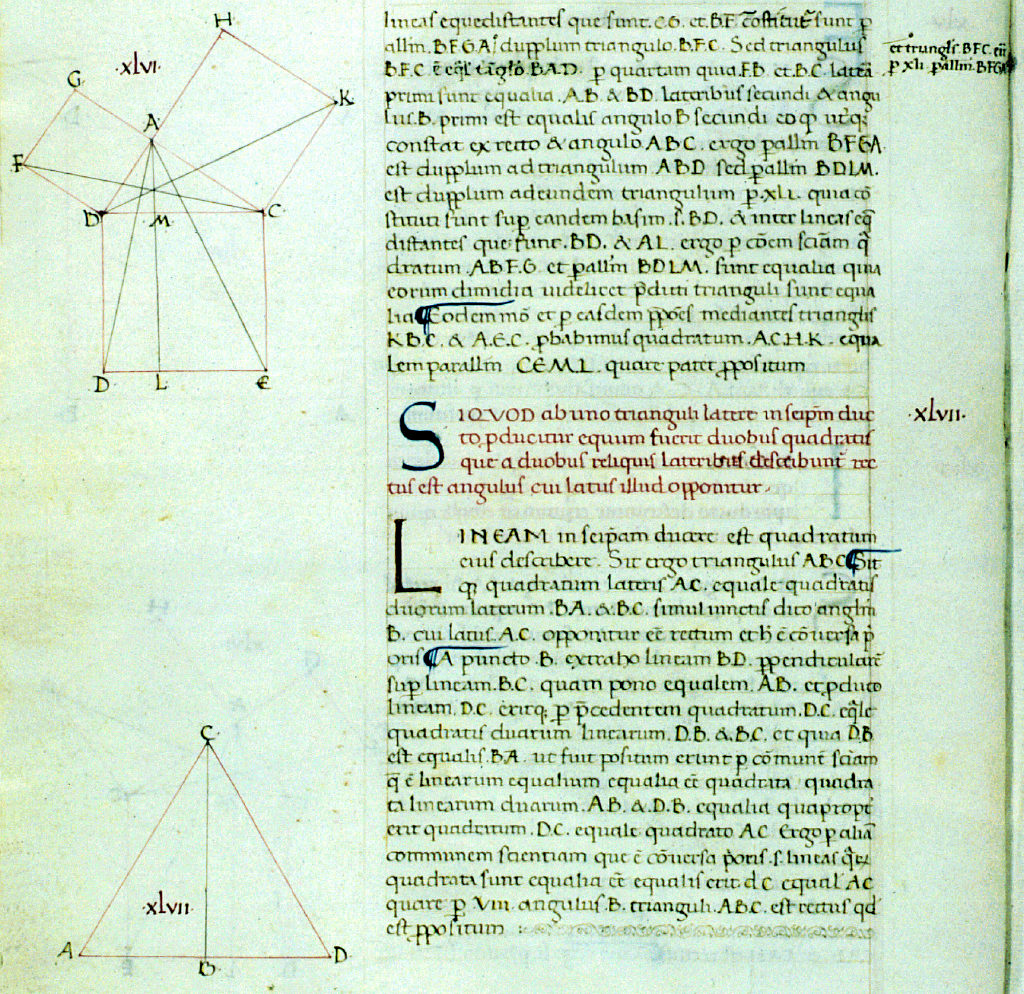 lineas equedistantes que sunt .C.G. et .B.F. sunt p
allm. B.F.G.A. dupplum triangulo .B.F.C. Sed triangulus
B.F.C. ē B.A.D. p quartam quia F.B. et .B.C. latera
primi sunt equalia .A.B. & B.D. lateribus secundi & angu
lus .B. primi est equalis angulo B secundi
constat ex recto & angulo ABC. ergo pallm BFGA
est dupplum ad triangulum ABD sed pallm BDLM.
est dupplum ad eundem triangulum p.XLI. quia cō
stituti sunt sup eandem basim .s. BD. & inter lineas eq
distantes que sunt .BD. & AL. ergo p cōem sciam q
dratum .ABFG et pallm BDLM. sunt equalia quia
eorum dimidia uidelicet pdicti trianguli sunt equa
lia Eodem mō et p easdem ppōes mediantes triangulis
K.B.C. & A.E.C. phabimus quadratum .A.C.H.K. equa
lem parallm C.E.M.L. quare patet ppositum
SIQUOD ab uno trianguli latere in seipm duc
to pducitur equum fuerit duobus quadratis
que a duobus reliquis lateribus describunt rec
tus est angulus cui latus illud opponitur.
LINEAM in seipam ducere est quadratum
eius describere. Sit ergo triangulus ABC Sit
qz quadratum lateris AC. equale quadratis
duorum laterum .BA. & BC. simul iunctis dico anglm
B. cui latus .A.C. opponitur eē rectum et h ē cōuersa p
oris A puncto .B. extraho lineam BD. ppendicularē
sup lineam .B.C. quam pono equalem .AB. et pduco
lineam .D.C. eritqz p pcedentem quadratum .D.C. eqle
quadratis duarum linearum .D.B. & B.C. et quia D.B
est equalis .BA. ut fuit positum erunt p cōmunē sciam
q ē linearum equalium equalia eē quadrata quadra
ta linearum duarum .AB. & D.B. equalia quapropt
erit quadratum .D.C. equale quadrato AC Ergo p aliā
communem scientiam que ē cōuersa poris .s. lineas
quadrata sunt equalia eē equalis erit d C equal AC
quare p VIII angulus .B. trianguli .ABC. est rectus qd
est ppositum
et trunglis .B.F.C. eū
p xli pallm .B.F.G.A
xlvii.
.xlvi.
H
G
K
A
F
D M C
D L E
C
.xlvii.
A B D